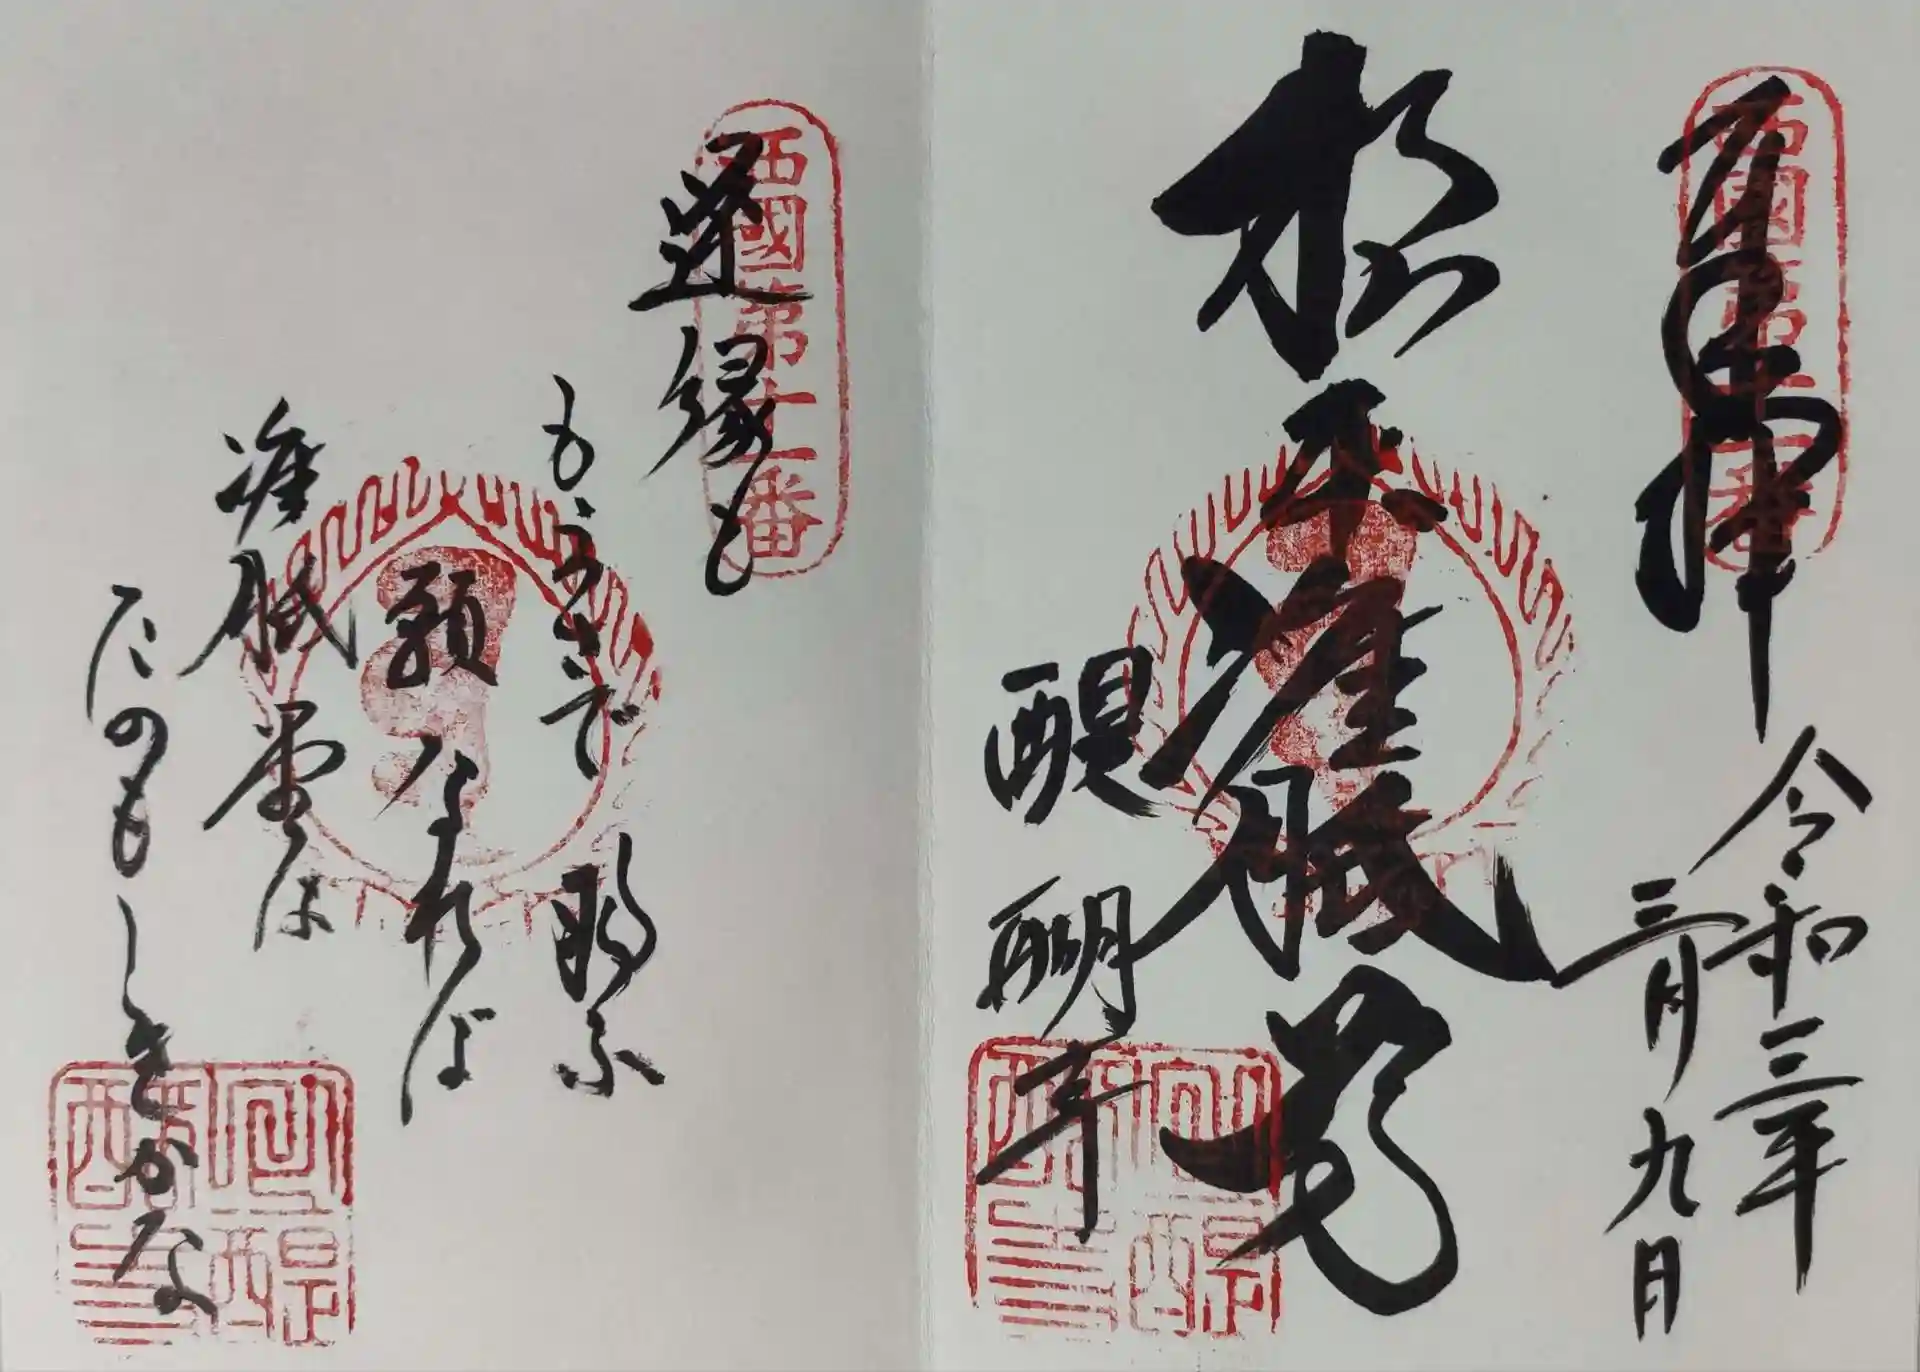 西國第十一番
奉拝
令和三年
三月九日
根本准胝尊
醍醐寺
西國第十一番
逆縁も
もらさで救ふ
願なれば
准胝堂は
たのもしきかな